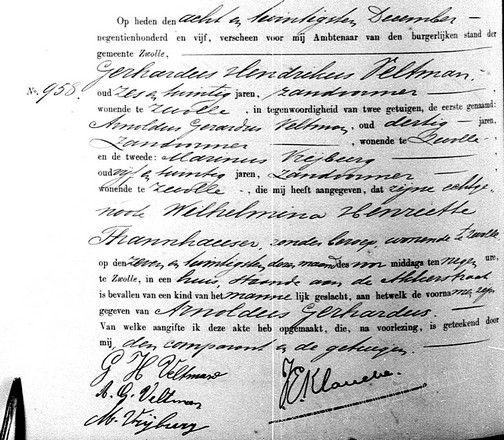 Op heden den acht en twintigsten December
negentienhonderd en vijf, verscheen voor mij Ambtenaar van den burgerlijken stand der
gemeente Zwolle,
Gerhardus Hendrikus Veltman,
No. 958. oud zes en twintig jaren, zandvormer
wonende te Zwolle, in tegenwoordigheid van twee getuigen, de eerste genaamd:
Arnoldus Gerardus Veltman, oud dertig jaren,
zandvormer, wonende te Zwolle
en de tweede: Marinus Vrijburg
oud vijf en twintig jaren, zandvormer
wonende te Zwolle, die mij heeft aangegeven, dat zijne echtge-
noote Wilhelmina Henriette
Thannhaeeser, zonder beroep, wonende te Zwolle
op den zeven en twintigsten dezer maand des voor middags ten negen ure,
te Zwolle, in een huis, staande aan de Akkerstraat
is bevallen van een kind van het mannelijk geslacht, aan hetwelk de voornamen zijn
gegeven van Arnoldus Gerhardus.
Van welke aangifte ik deze akte heb opgemaakt, die, na voorlezing, is geteekend door
mij, den comparant en de getuigen.
G H Veltman
A. G. Veltman
M. Vrijburg